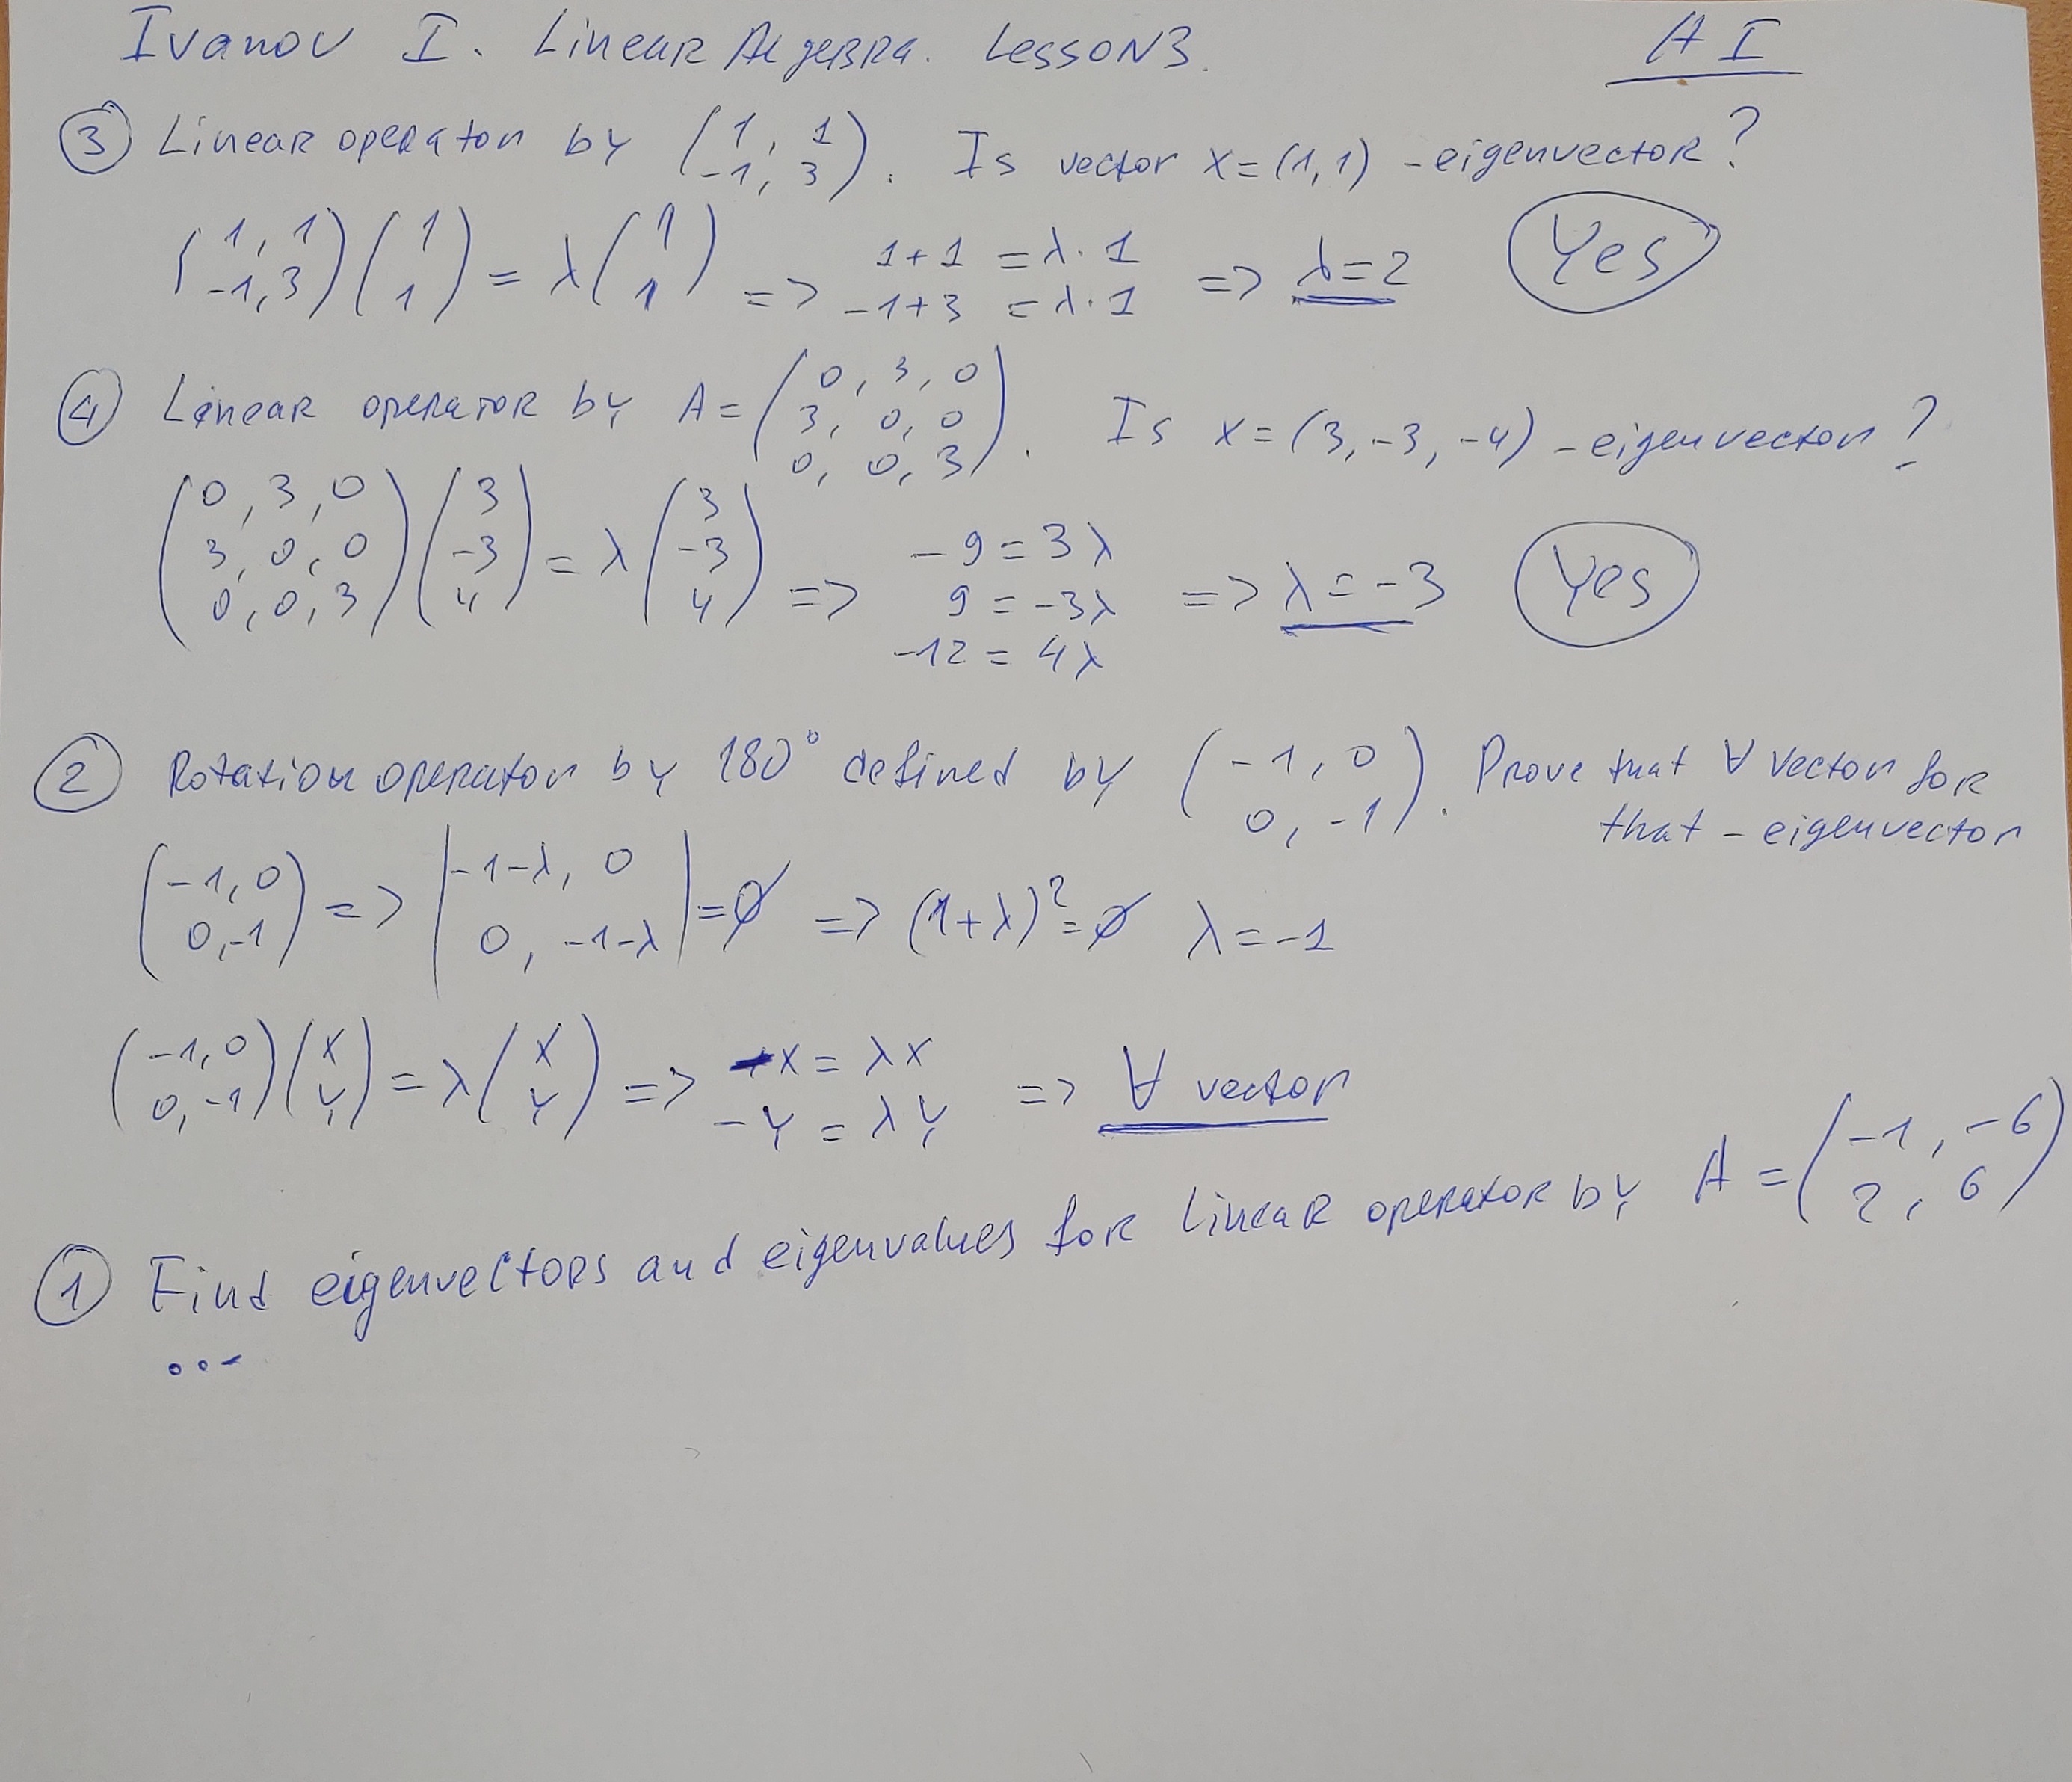 Ivanov I. Linear Algebra. Lesson 3. AI
③ Linear operator by (1, 1 / -1, 3). Is vector x=(1,1) - eigenvector?
(1, 1 / -1, 3)(1 / 1) = λ(1 / 1) => 1+1 = λ·1 / -1+3 = λ·1 => λ=2 Yes
④ Linear operator by A=(0, 3, 0 / 3, 0, 0 / 0, 0, 3). Is x=(3,-3,-4) - eigenvector?
(0, 3, 0 / 3, 0, 0 / 0, 0, 3)(3 / -3 / 4) = λ(3 / -3 / 4) => -9=3λ / 9=-3λ / -12=4λ => λ=-3 Yes
② Rotation operator by 180° defined by (-1, 0 / 0, -1). Prove that ∀ vector for
that - eigenvector
(-1, 0 / 0, -1) => |-1-λ, 0 / 0, -1-λ| = 0 => (1+λ)² = 0 λ=-1
(-1, 0 / 0, -1)(x / y) = λ(x / y) => -x = λx / -y = λy => ∀ vector
① Find eigenvectors and eigenvalues for linear operator by A=(-1, -6 / 2, 6)
...